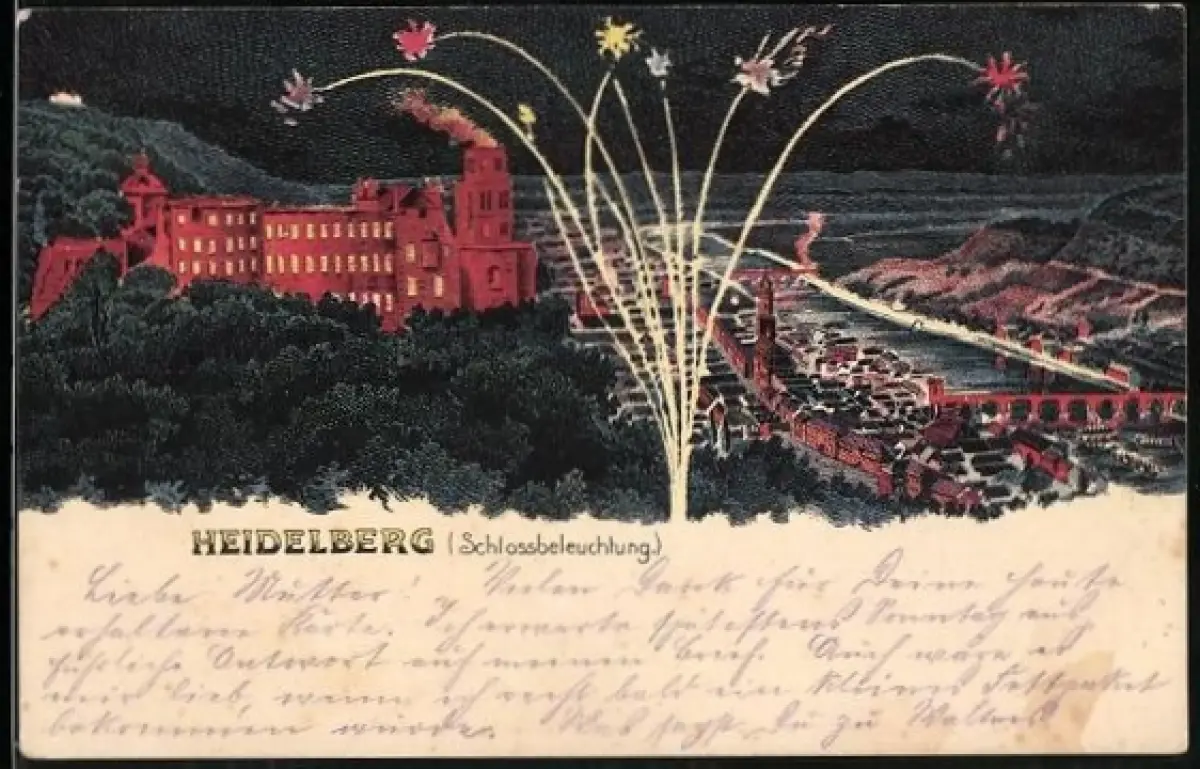 HEIDELBERG (Schlossbeleuchtung.)
Liebe Mutter! Vielen Dank für Deine heute
erhaltene Karte. Ich erwarte spätestens Sonntag aus
führliche Antwort auf meinen Brief. Auch wäre es
mir lieb, wenn ich recht bald ein kleines Fettpaket
bekommen würde. Was sagst Du zu Walters